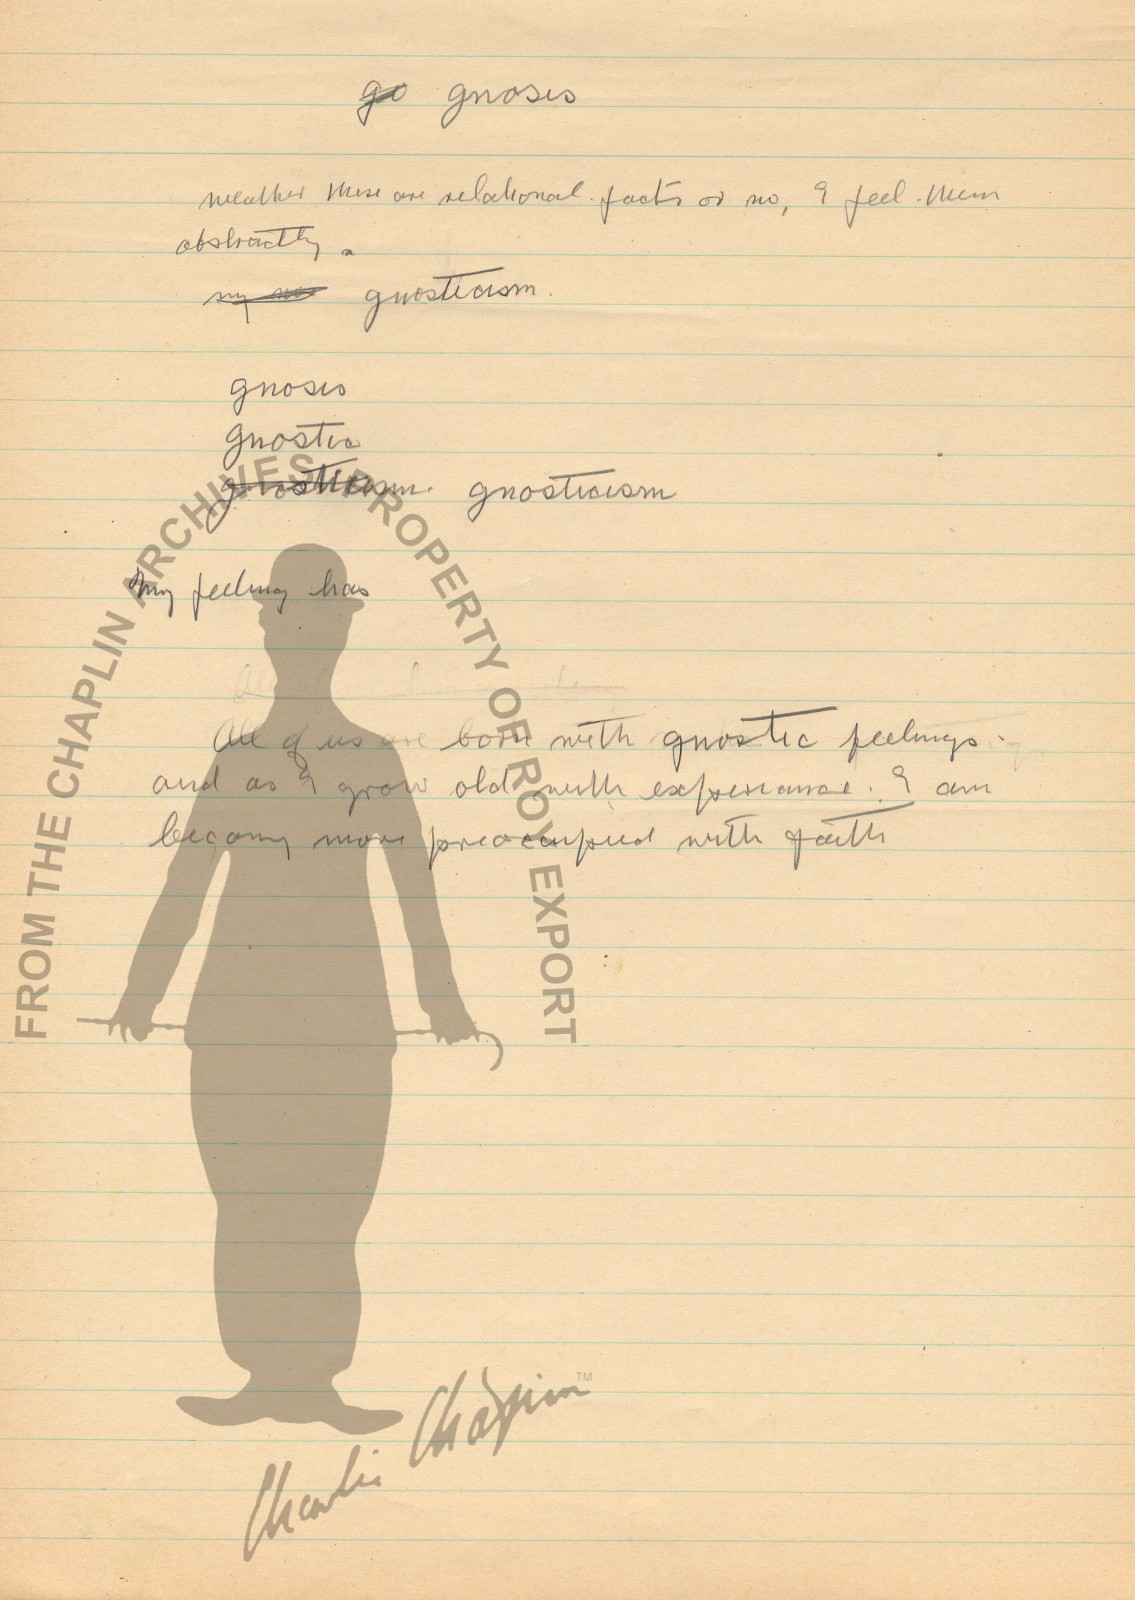 go gnosis
weather these are relational facts or no, I feel them
abstractly.
my no gnosticism.
gnosis
gnostic
gnosticism. gnosticism
My feeling has
All of us are born with gnostic feelings.
and as I grow old with experiance. I am
becoming more preoccupied with faith
FROM THE CHAPLIN ARCHIVES. PROPERTY OF ROY EXPORT
Charlie Chaplin™